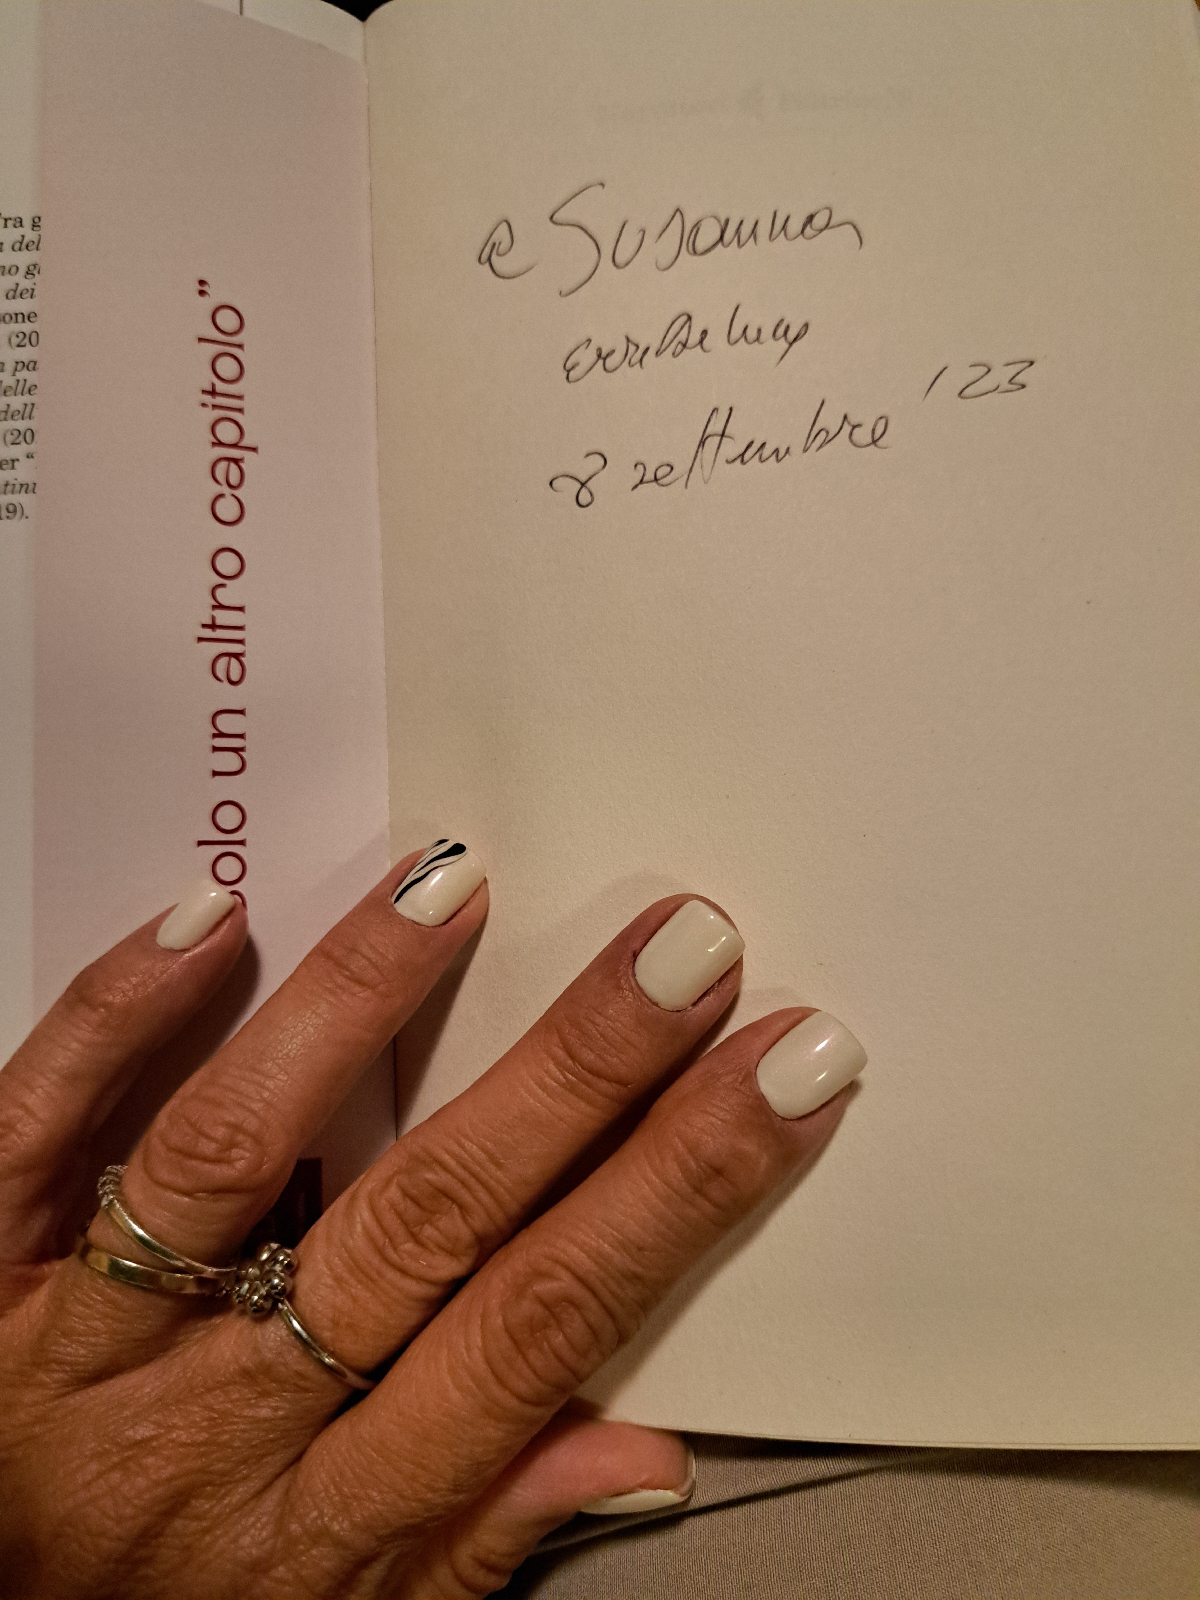 ra g
del
no g
dei
sone
(20
pa
delle
dell
(20
er “
tini
19).
solo un altro capitolo”
a Susanna
Erri De Luca
8 settembre '23